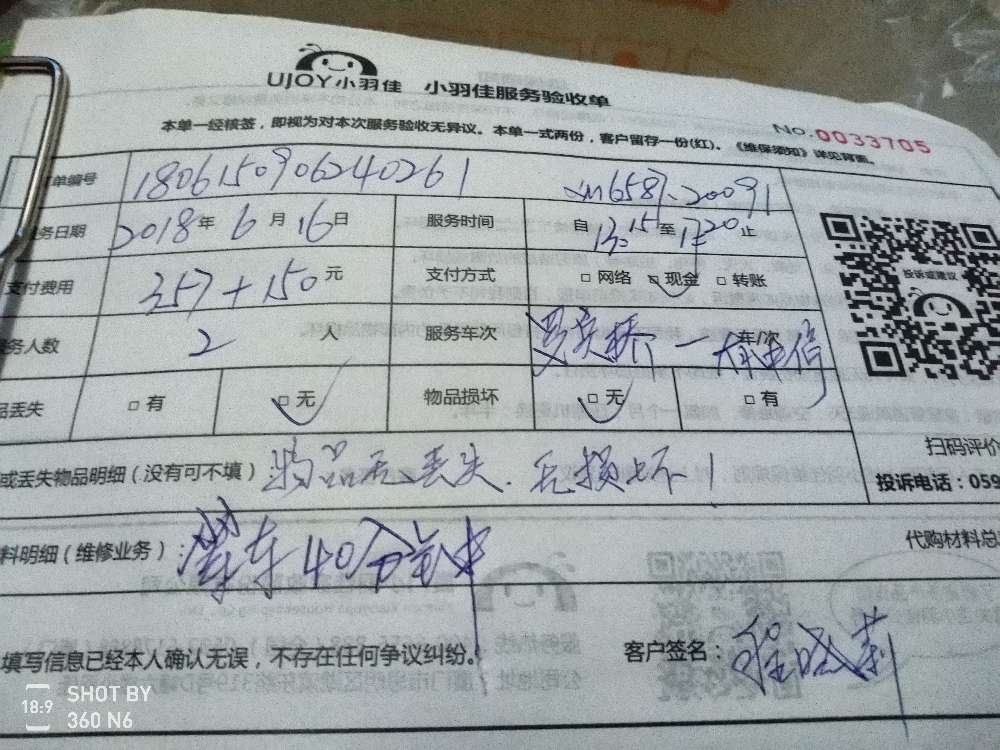 UJOY小羽佳 小羽佳服务验收单
No.0033705
本单一经核签，即视为对本次服务验收无异议。本单一式两份，客户留存一份(红)。《维保须知》详见背面。
单编号 1806150906240261
务日期 2018年6月16日 服务时间 自13:15至17:20止
支付费用 357+150元 支付方式 □网络 □现金 □转账
务人数 2人 服务车次 车/次
品丢失 □有 □无 物品损坏 □无 □有
投诉或建议
扫码评价
投诉电话：059
或丢失物品明细（没有可不填） 物品无丢失.无损坏！
料明细（维修业务）： 等车40分钟 代购材料总
填写信息已经本人确认无误，不存在任何争议纠纷。 客户签名：
SHOT BY
18:9 360 N6